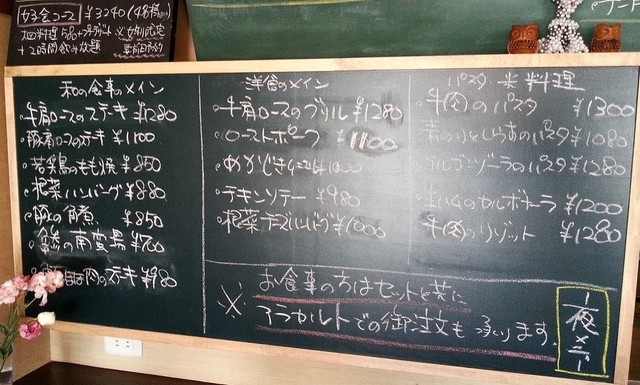 女子会コース ¥3240(4名様より)
+2時間飲み放題
和の食事のメイン
・牛肩ロースのステーキ ¥1280
・豚肩ロースのステーキ ¥1100
・若鶏のもも焼 ¥850
・根菜ハンバーグ ¥880
・豚の角煮 ¥850
の南蛮 ¥700
ほほ肉のステーキ ¥980
洋食のメイン
・牛肩ロースのグリル ¥1280
・ローストポーク ¥1100
・めかじき
・チキンソテー ¥980
・根菜デミハンバーグ ¥1000
パスタ 米料理
・牛肉のパスタ ¥1300
青のりとしらすのパスタ ¥1080
ゴルゴンゾーラのパスタ ¥1280
生ハムのカルボナーラ ¥1200
牛肉のリゾット ¥1280
※ お食事の方はセットと共に
アラカルトでの御注文も承ります。
夜メニュー